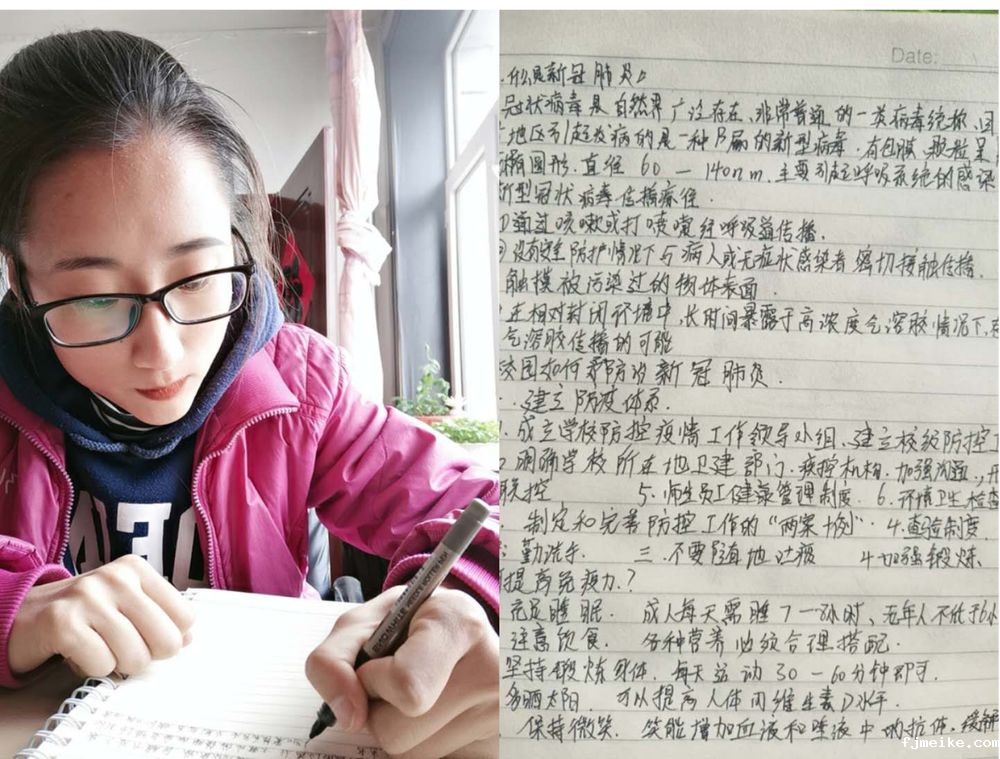 Date:
什么是新冠肺炎
冠状病毒是自然界广泛存在、非常普通的一类病毒统称,因
地区引起疫病的是一种β属的新型病毒.有包膜 颗粒呈
椭圆形.直径 60 — 140nm.主要引起呼吸系统的感染
新型冠状病毒传播途径.
①通过咳嗽或打喷嚏经呼吸道传播.
没有安全防护情况下与病人或无症状感染者密切接触传播.
触摸被污染过的物体表面.
在相对封闭环境中,长时间暴露于高浓度气溶胶情况下,
气溶胶传播的可能
校园如何 预防 新冠肺炎.
建立防疫体系.
1.成立学校防控疫情工作领导小组、建立校级防控工
2.明确学校所在地卫建部门.疾控机构.加强沟通.,
联控 5.师生员工健康管理制度 6.环境卫生检查
制定和完善防控工作的“两案 例”. 4. 验制度.
勤洗手. 三.不要随地吐痰 4.加强锻炼.
提高免疫力?
充足睡眠. 成人每天需睡7—8小时、 年人不低于6小
注意饮食. 各种营养必须合理搭配.
坚持锻炼身体.每天运动30—60分钟即可.
多晒太阳. 可以提高人体内维生素D水平.
保持微笑. 笑能增加血液和唾液中的抗体.缓解
fjmeike.com